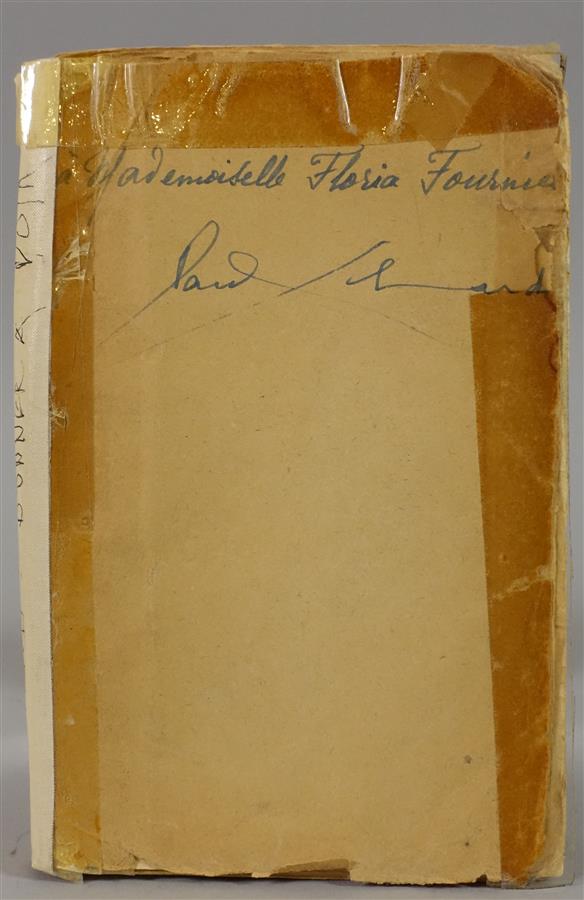 à Mademoiselle Floria Fournier
Paul Eluard
DONNER A VOIR